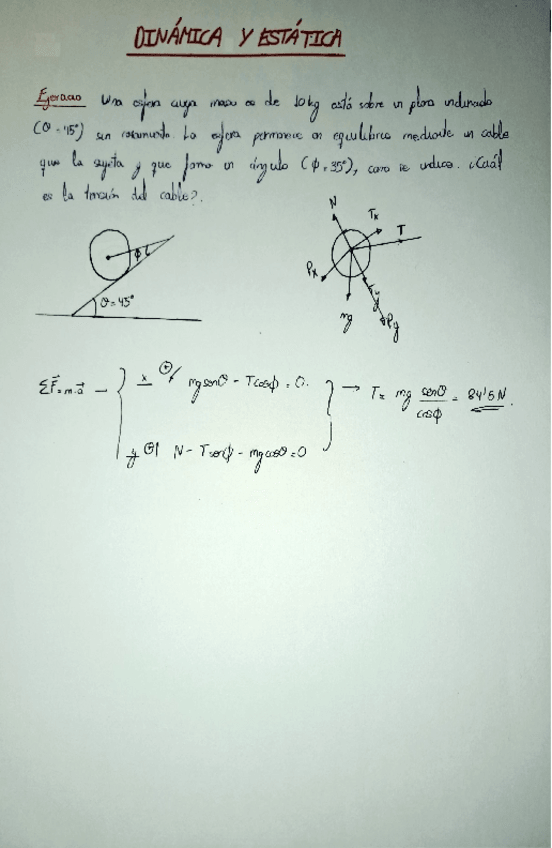 DINÁMICA Y ESTÁTICA
Ejercicio Una esfera cuya masa es de 10kg está sobre un plano inclinado
(θ = 45°) sin rozamiento. La esfera permanece en equilibrio mediante un cable
que la sujeta y que forma un ángulo (ϕ = 35°), como se indica. ¿Cuál
es la tensión del cable?
ϕ
θ = 45°
N
Tx
T
Px
Ty
mg
Py
ΣF⃗ = m·a⃗ — { x ⊕ mg senθ - T cosϕ = 0. } → T = mg senθ/cosϕ = 84'6 N.
y ⊕ N - T senϕ - mg cosθ = 0